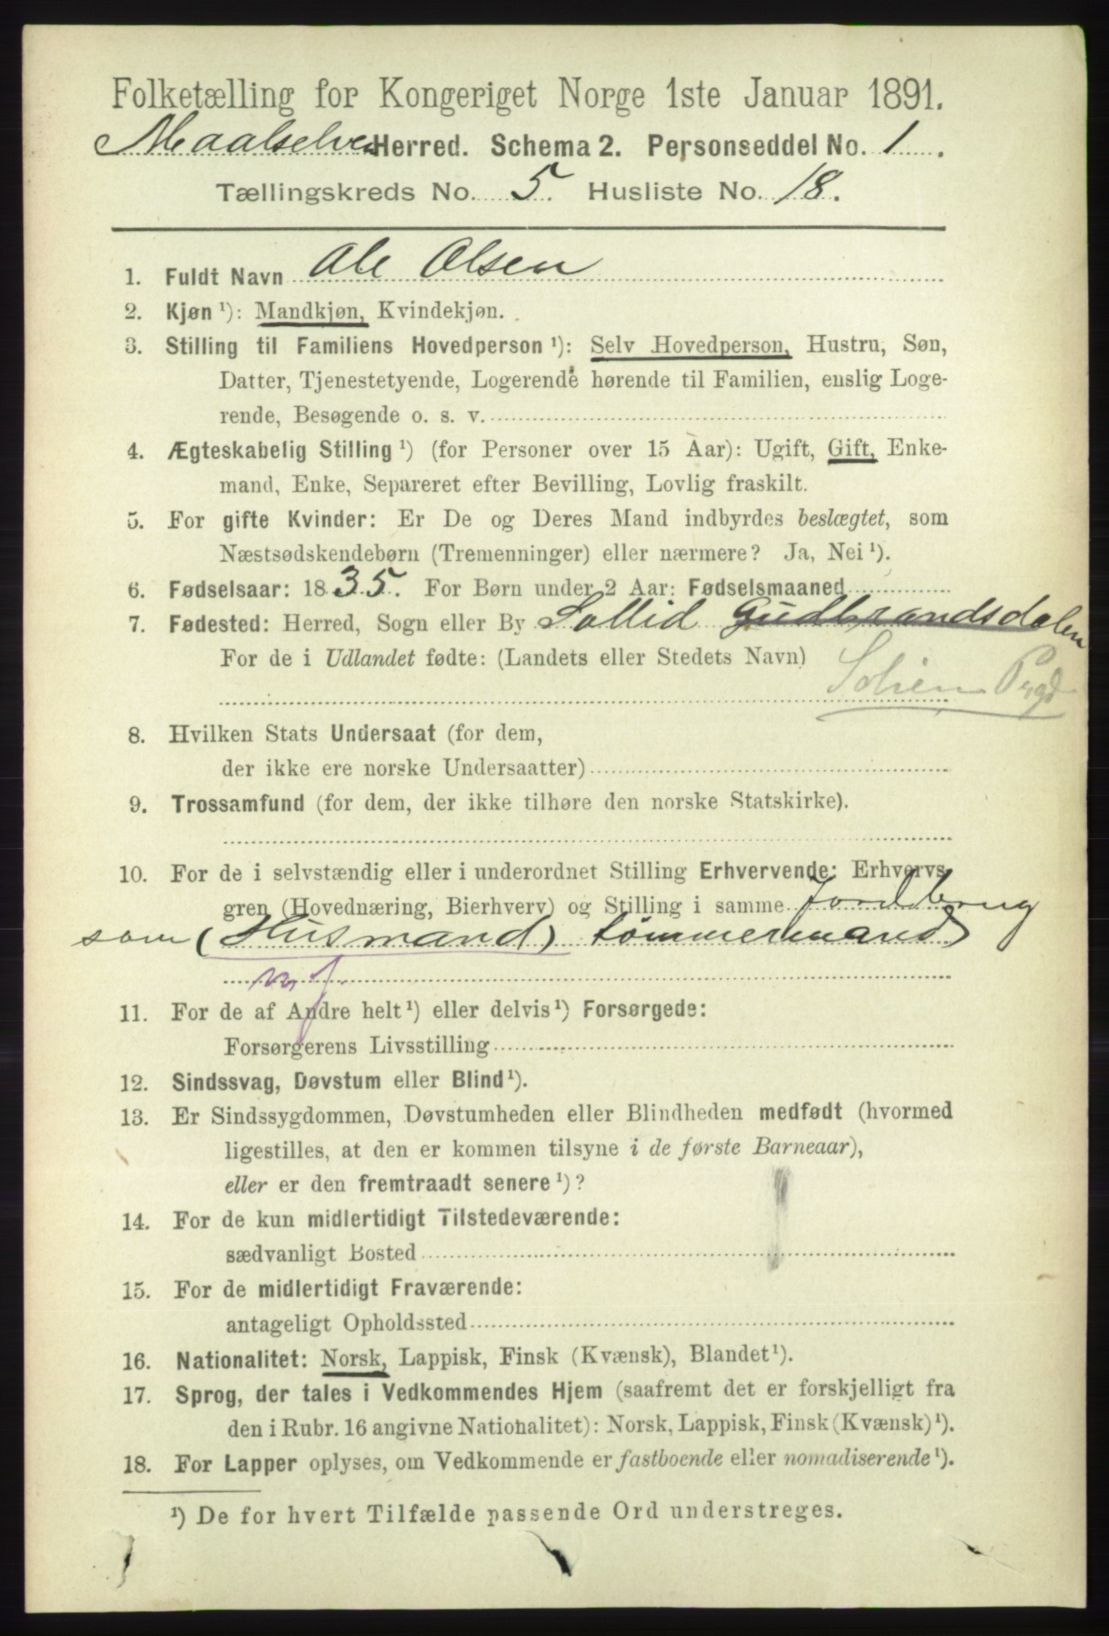 Folketælling for Kongeriget Norge 1ste Januar 1891.
Maalselven Herred. Schema 2. Personseddel No. 1.
Tællingskreds No. 5. Husliste No. 18.
1. Fuldt Navn Ole Olsen
2. Kjøn ¹): Mandkjøn, Kvindekjøn.
3. Stilling til Familiens Hovedperson ¹): Selv Hovedperson, Hustru, Søn,
Datter, Tjenestetyende, Logerende hørende til Familien, enslig Loge-
rende, Besøgende o. s. v.
4. Ægteskabelig Stilling ¹) (for Personer over 15 Aar): Ugift, Gift, Enke-
mand, Enke, Separeret efter Bevilling, Lovlig fraskilt.
5. For gifte Kvinder: Er De og Deres Mand indbyrdes beslægtet, som
Næstsødskendebørn (Tremenninger) eller nærmere? Ja, Nei ¹).
6. Fødselsaar: 1835. For Børn under 2 Aar: Fødselsmaaned
7. Fødested: Herred, Sogn eller By Sollid Gudbrandsdalen
For de i Udlandet fødte: (Landets eller Stedets Navn)
8. Hvilken Stats Undersaat (for dem,
der ikke ere norske Undersaatter)
9. Trossamfund (for dem, der ikke tilhøre den norske Statskirke).
10. For de i selvstændig eller i underordnet Stilling Erhvervende: Erhvervs-
gren (Hovednæring, Bierhverv) og Stilling i samme Jordbrug
som (Husmand) tømmermand
11. For de af Andre helt ¹) eller delvis ¹) Forsørgede:
Forsørgerens Livsstilling
12. Sindssvag, Døvstum eller Blind ¹).
13. Er Sindssygdommen, Døvstumheden eller Blindheden medfødt (hvormed
ligestilles, at den er kommen tilsyne i de første Barneaar),
eller er den fremtraadt senere ¹)?
14. For de kun midlertidigt Tilstedeværende:
sædvanligt Bosted
15. For de midlertidigt Fraværende:
antageligt Opholdssted
16. Nationalitet: Norsk, Lappisk, Finsk (Kvænsk), Blandet ¹).
17. Sprog, der tales i Vedkommendes Hjem (saafremt det er forskjelligt fra
den i Rubr. 16 angivne Nationalitet): Norsk, Lappisk, Finsk (Kvænsk) ¹).
18. For Lapper oplyses, om Vedkommende er fastboende eller nomadiserende ¹).
¹) De for hvert Tilfælde passende Ord understreges.